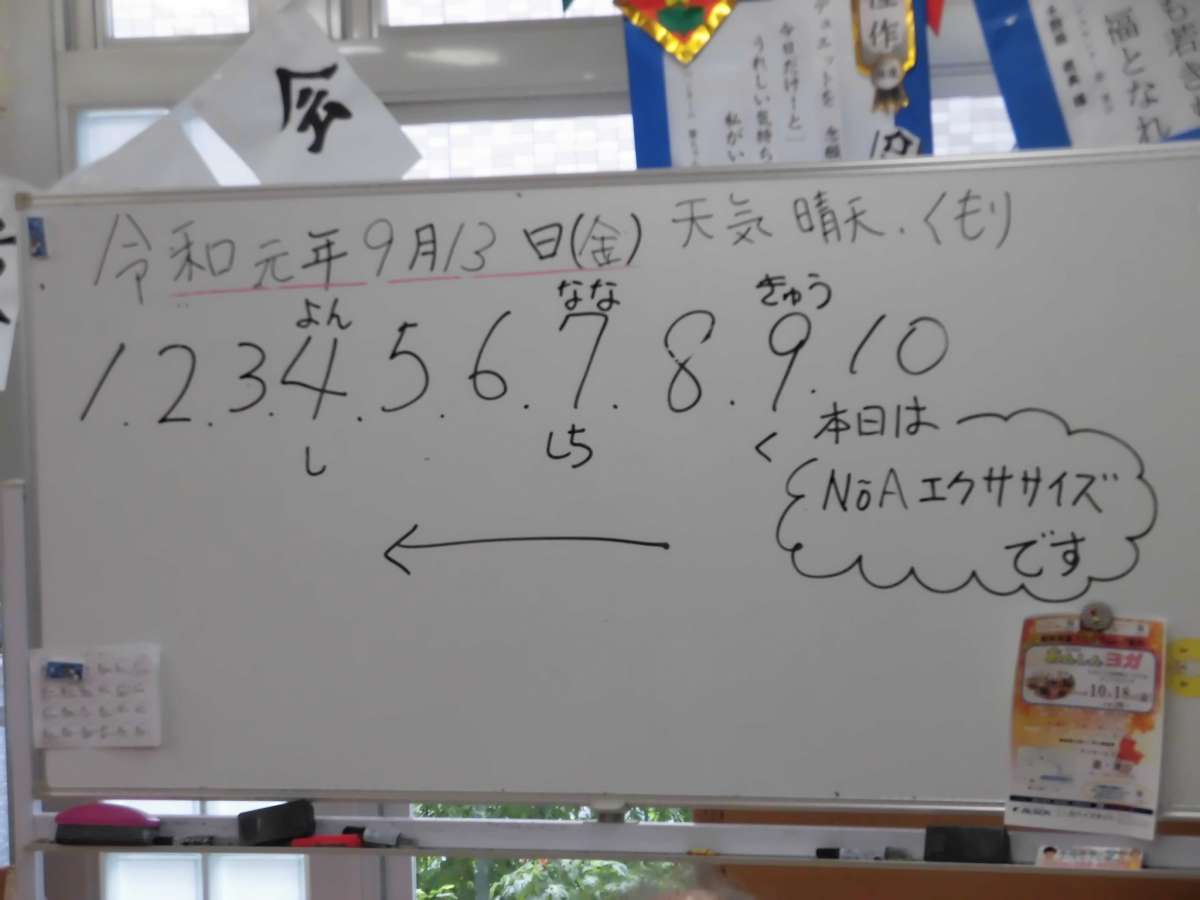 令
佳作
デュエットを
今日だけーと
うれしい気持ち
私がい
福となれ
令和元年9月13日(金) 天気 晴天.くもり
よん なな きゅう
1.2.3.4.5.6.7.8.9.10
し しち く
本日は
NōAエクササイズ
です
ヨガ
10.18